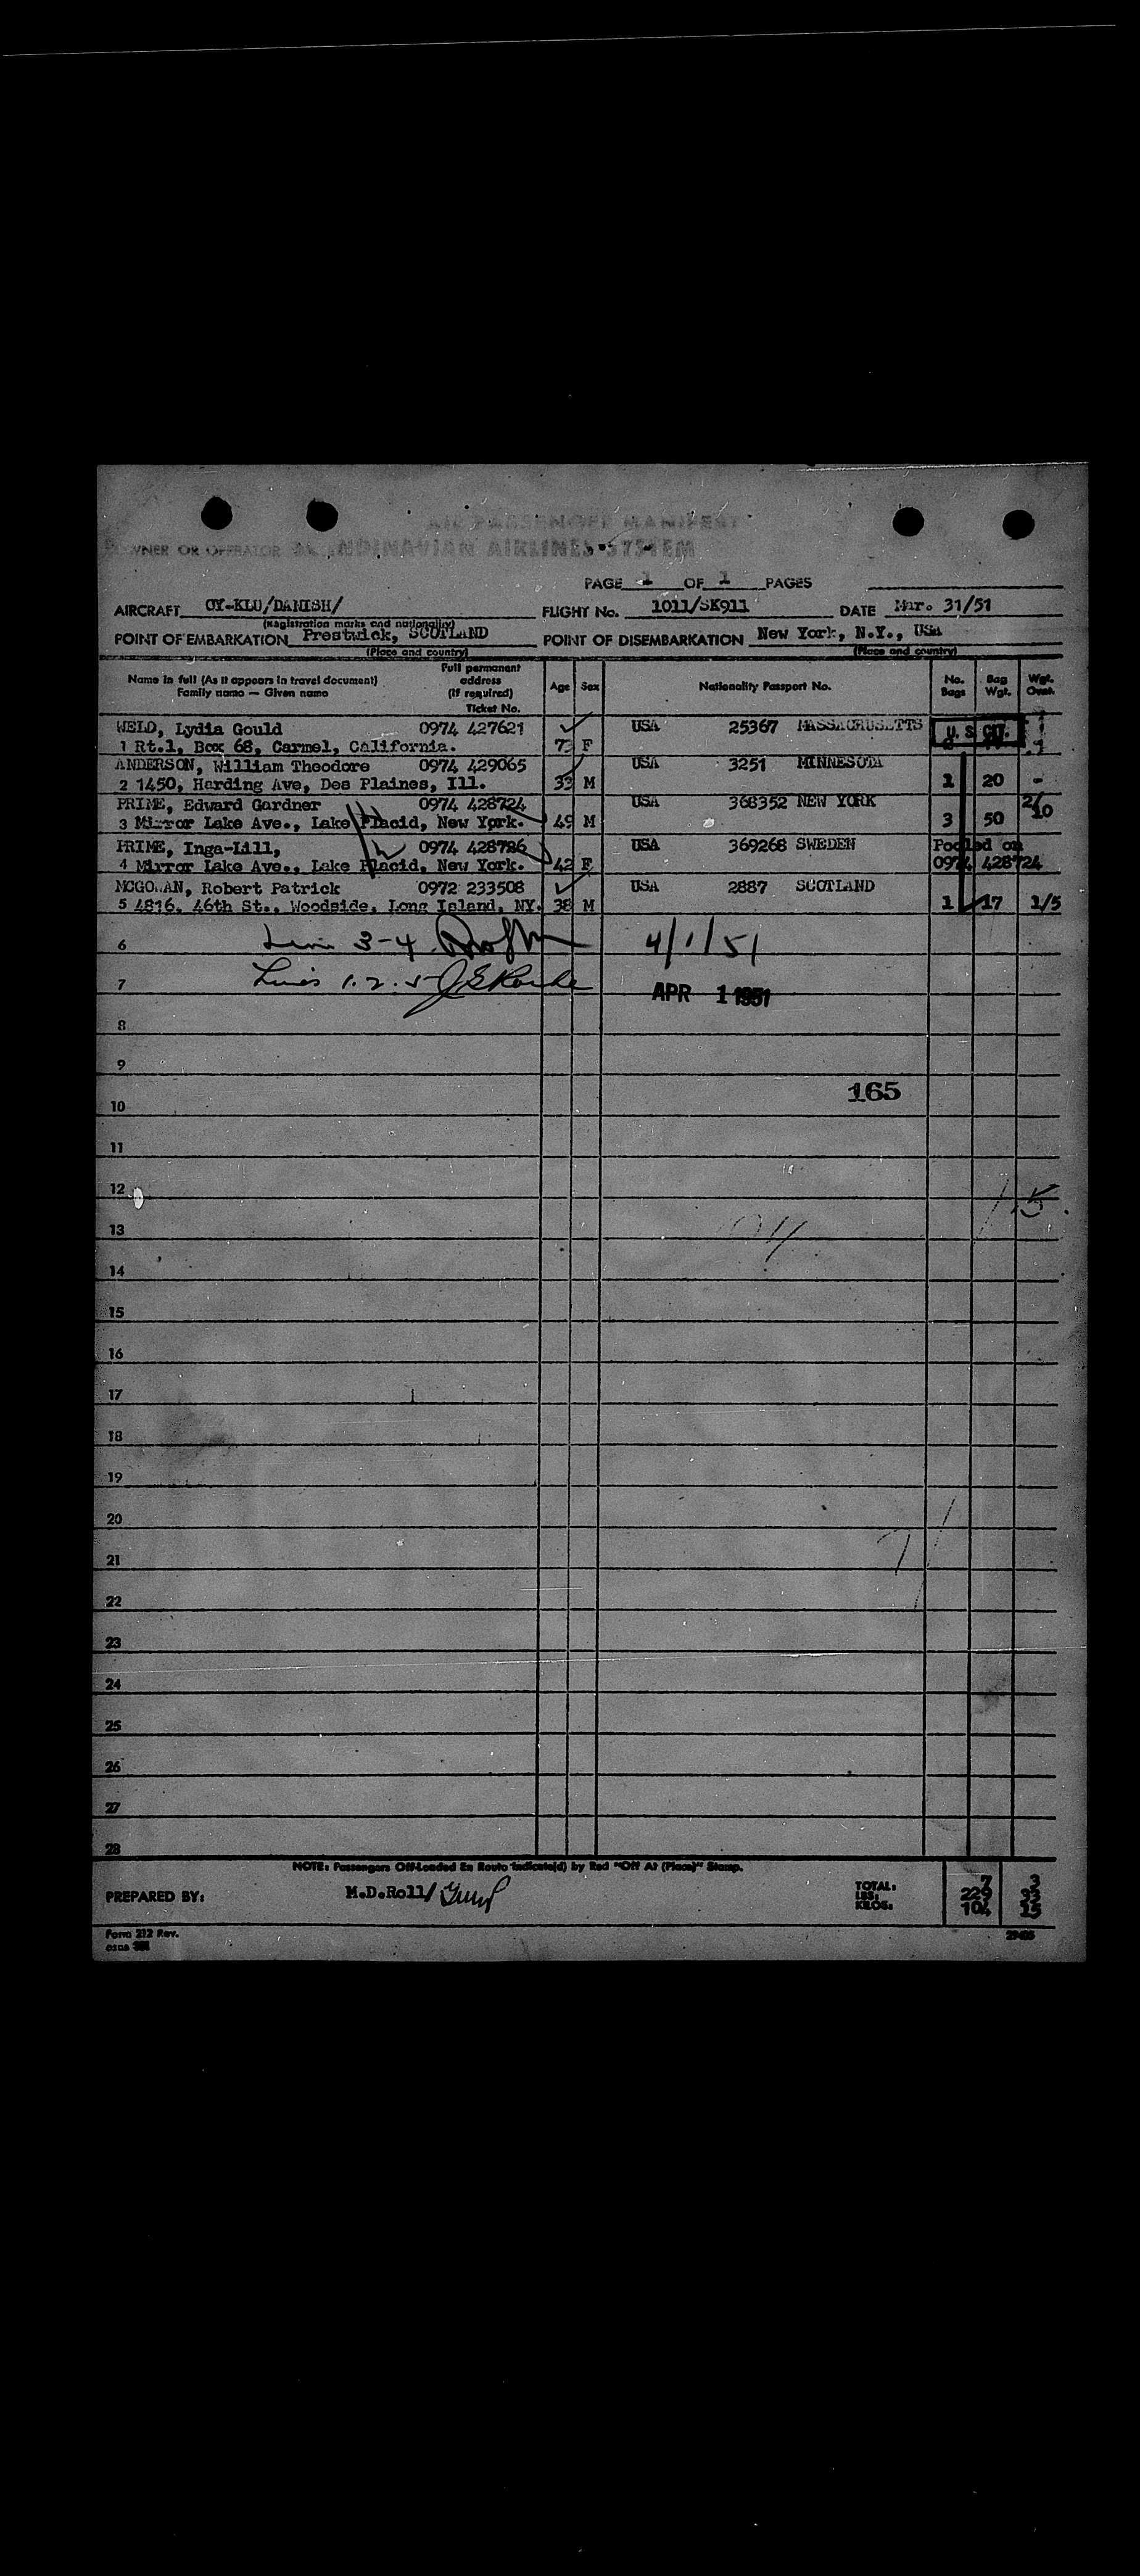 AIR PASSENGER MANIFEST
OWNER OR OPERATOR SCANDINAVIAN AIRLINES SYSTEM
PAGE 1 OF 1 PAGES
AIRCRAFT OY-KLU/DANISH/ FLIGHT No. 1011/SK911 DATE Mar. 31/51
(Registration marks and nationality)
POINT OF EMBARKATION Prestwick, SCOTLAND POINT OF DISEMBARKATION New York, N.Y., USA
(Place and country) (Place and country)
Name in full (As it appears in travel document) Family name — Given name Full permanent address (If required) Ticket No. Age Sex Nationality Passport No. No. Bags Bag Wgt. Wgt. Ovwt.
WELD, Lydia Gould 0974 427621 USA 25367 MASSACHUSETTS U. S. CIT.
1 Rt.1, Box 68, Carmel, California. 73 F
ANDERSON, William Theodore 0974 429065 USA 3251 MINNESOTA
2 1450, Harding Ave, Des Plaines, Ill. 33 M 1 20 -
PRIME, Edward Gardner 0974 428724 USA 368352 NEW YORK 2/10
3 Mirror Lake Ave., Lake Placid, New York. 49 M 3 50
PRIME, Inga-Lill, 0974 428726 USA 369268 SWEDEN Pooled on
4 Mirror Lake Ave., Lake Placid, New York. 42 F 0974 428724
MCGOWAN, Robert Patrick 0972 233508 USA 2887 SCOTLAND
5 4816, 46th St., Woodside, Long Island, NY. 38 M 1 17 1/5
6 3-4 4/1/51
7 Lines 1.2.5 APR 1 1951
8
9
165
10
11
12
13
14
15
16
17
18
19
20
21
22
23
24
25
26
27
28
NOTE: Passengers Off-Loaded En Route Indicate(d) by Red "Off At (Place)" Stamp.
PREPARED BY: M.D.Roll/
TOTAL: 7 3
LBS: 229 33
KILOS: 104 15
Form 212 Rev.